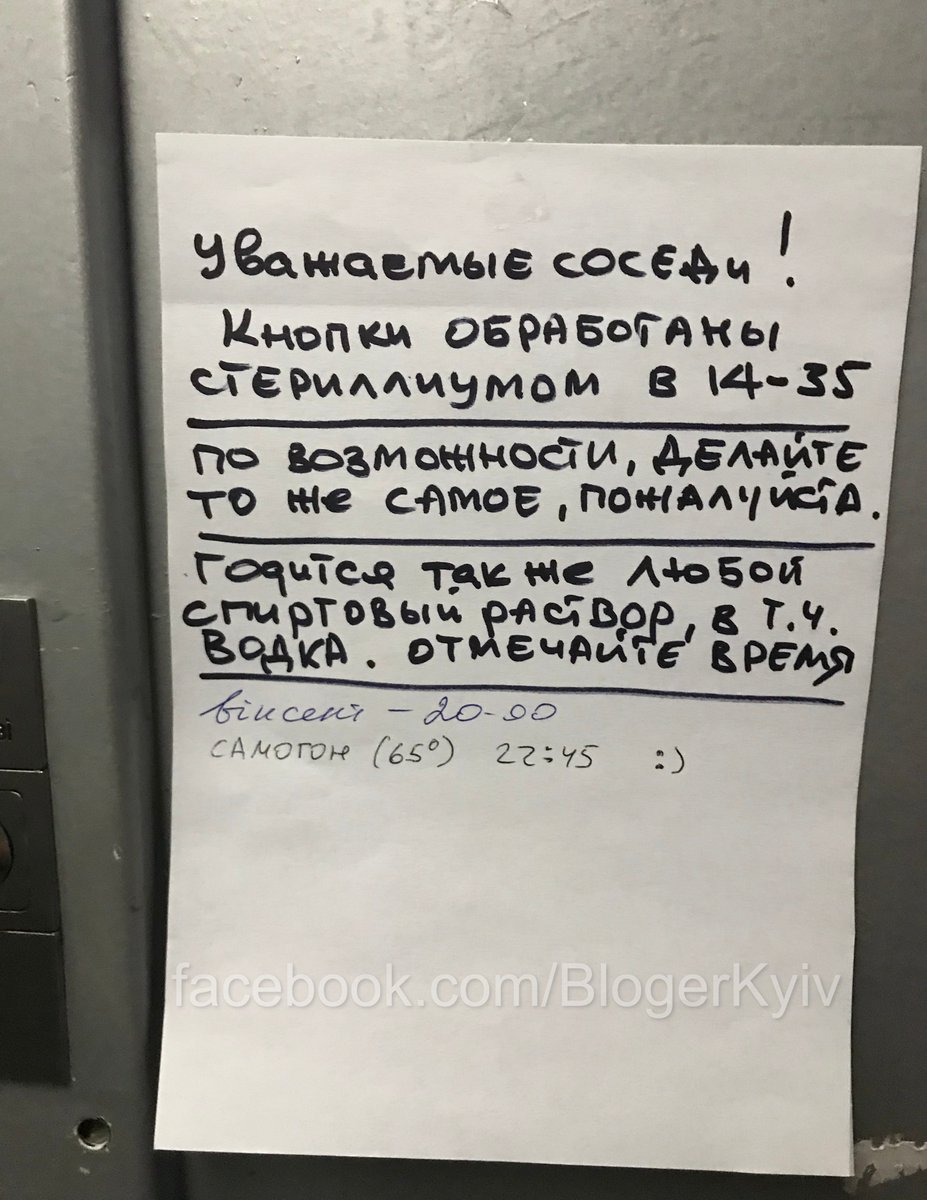 Уважаемые соседи!
Кнопки обработаны
стериллиумом в 14-35
по возможности, делайте
то же самое, пожалуйста.
Годится также любой
спиртовый раствор, в т.ч.
водка. отмечайте время
вінсент - 20-00
САМОГОН (65°) 22:45 :)
facebook.com/BlogerKyiv